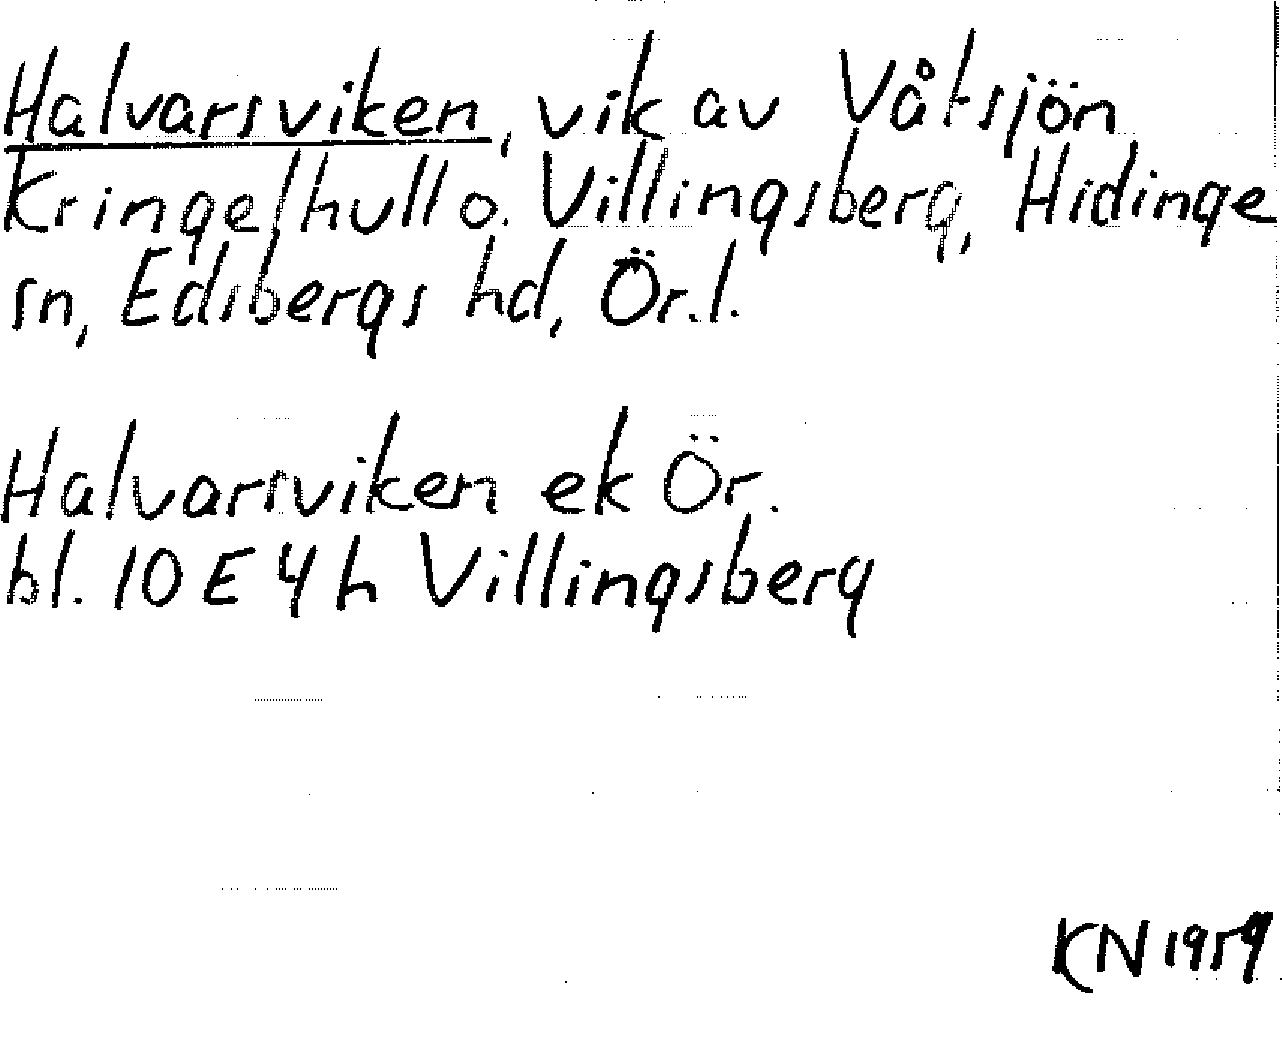 Halvarsviken, vik av Våtsjön
Kringelhull o. Villingsberg, Hidinge
sn, Edsbergs hd, Ör.l.
Halvarsviken ek Ör.
bl. 10 E 4 h Villingsberg
KN 1959